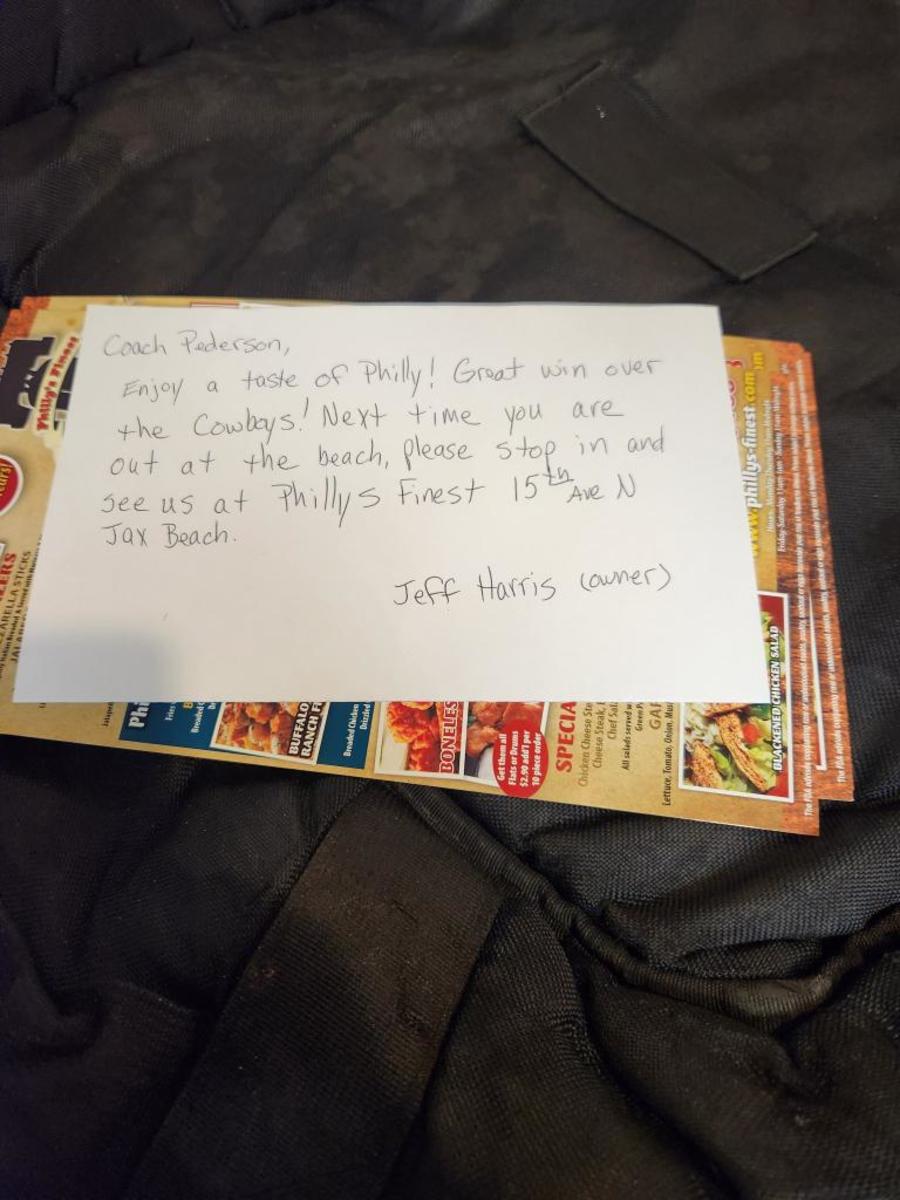 Coach Pederson,
Enjoy a taste of Philly! Great win over
the Cowboys! Next time you are
out at the beach, please stop in and
see us at Phillys Finest 15th Ave N
Jax Beach.
Jeff Harris (owner)
Philly's Finest
ZZARELLA STICKS
www.phillys-finest.com
Phi
BUFFALO
RANCH F
Breaded Chicken
Drizzled
BONELES
Get them all
Flats or Drums
$2.90 add'l per
10 piece order
SPECIA
Chicken Cheese Ste
Cheese Steak,
Chef Sal
All salads served w
Green P
GA
Lettuce, Tomato, Onion, Mus
BLACKENED CHICKEN SALAD